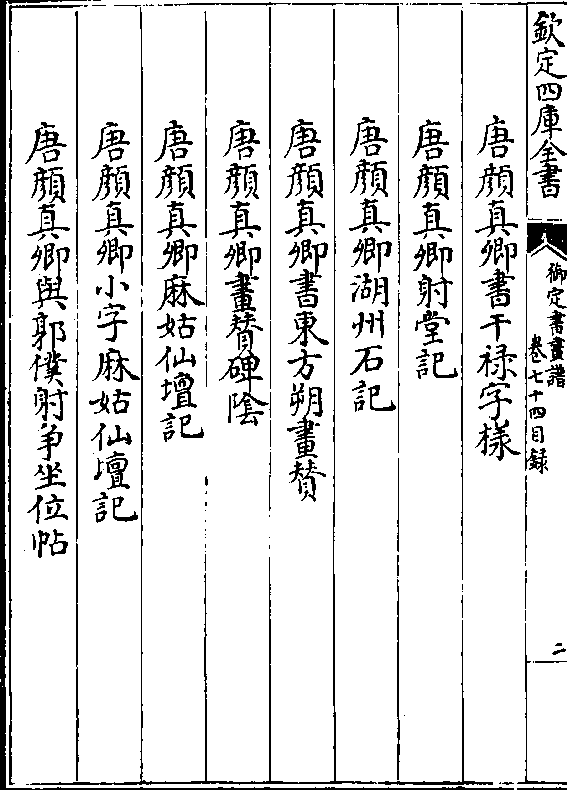 欽定四庫全書
御定書畫譜
卷七十四目録
二
唐顔真卿書干禄字樣
唐顔真卿射堂記
唐顔真卿湖州石記
唐顔真卿書東方朔畫賛
唐顔真卿畫賛碑隂
唐顔真卿麻姑仙壇記
唐顔真卿小字麻姑仙壇記
唐顔真卿與郭僕射争坐位帖